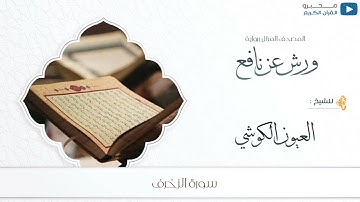 محبرو
القرآن الكريم
المصحف المرتل برواية
ورش عن نافع
للشيخ :
العيون الكوشي
سورة الزخرف